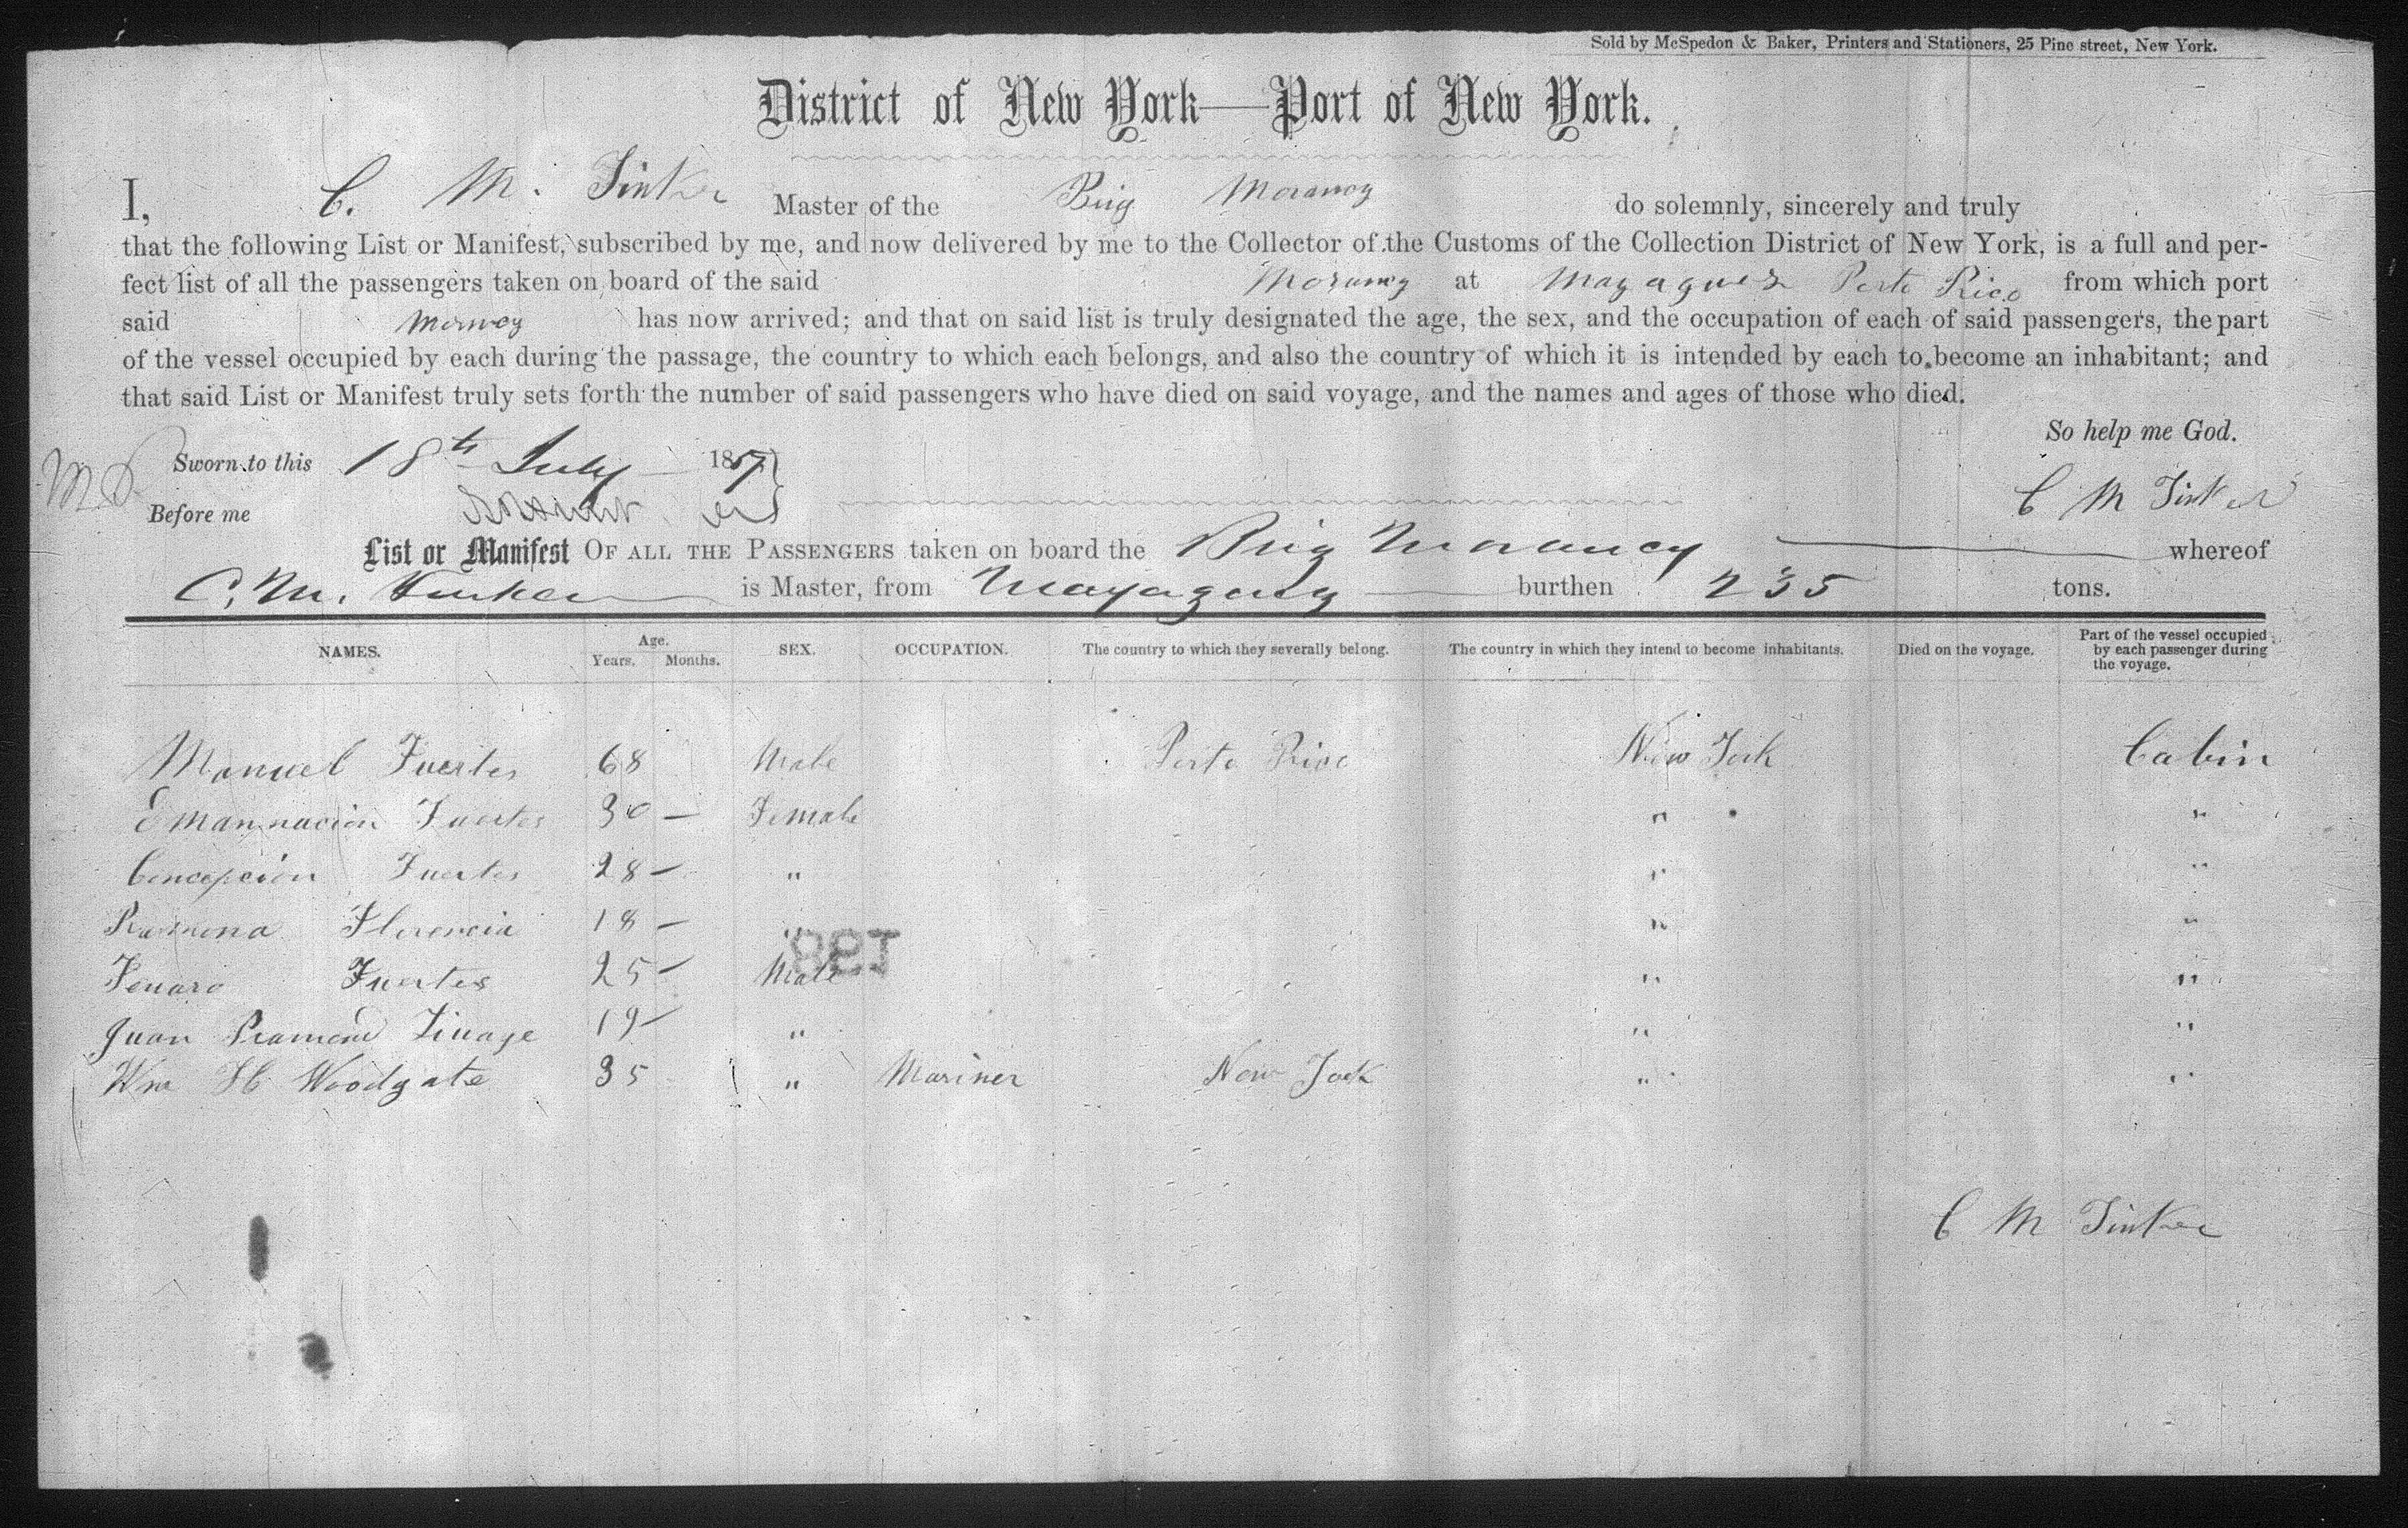 Sold by McSpedon & Baker, Printers and Stationers, 25 Pine street, New York.
District of New York—Port of New York.
I, C. M. Tinker Master of the Brig Morancy do solemnly, sincerely and truly
that the following List or Manifest, subscribed by me, and now delivered by me to the Collector of the Customs of the Collection District of New York, is a full and per-
fect list of all the passengers taken on board of the said Morancy at Mayaguez Porto Rico from which port
said Morancy has now arrived; and that on said list is truly designated the age, the sex, and the occupation of each of said passengers, the part
of the vessel occupied by each during the passage, the country to which each belongs, and also the country of which it is intended by each to become an inhabitant; and
that said List or Manifest truly sets forth the number of said passengers who have died on said voyage, and the names and ages of those who died.
So help me God.
Sworn to this 18th July 1857
C M Tinker
Before me
List or Manifest OF ALL THE PASSENGERS taken on board the Brig Morancy whereof
C. M. Tinker is Master, from Mayaguez burthen 235 tons.
NAMES. Age. Years. Months. SEX. OCCUPATION. The country to which they severally belong. The country in which they intend to become inhabitants. Died on the voyage. Part of the vessel occupied by each passenger during the voyage.
Manuel Fuertes 68 Male Porto Rico New York Cabin
Emannacion Fuertes 30 — Female " "
Concepcion Fuertes 28 — " " "
Ramona Florencia 18 — " " "
Jenaro Fuertes 25 — Male " "
Juan Ramon 19 — " " "
Wm H Woodgate 35 " Mariner New York " "
C M Tinker